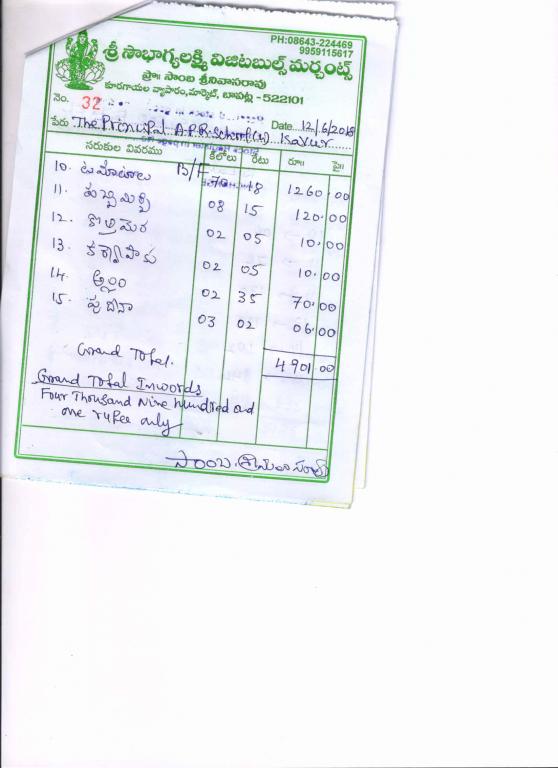 PH:08643-224469
9959115617
శ్రీ సౌభాగ్యలక్ష్మి విజిటబుల్స్ మర్చంట్స్
ప్రొః సాంబ శ్రీనివాసరావు
కూరగాయల వ్యాపారం, మార్కెట్, బాపట్ల - 522101
నెం. 32
Date 12/6/2018
పేరు The Principal A.P.R. School (G) Kavur
సరుకుల వివరము కేలోలు రేటు రూ॥ పై॥
B/F
10. టమోటాలు 70 18 1260.00
11. పచ్చిమిర్చి 08 15 120.00
12. కొత్తిమెర 02 05 10.00
13. కర్వేపాకు 02 05 10.00
14. అల్లం 02 35 70.00
15. పుదీనా 03 02 06.00
Grand Total. 4901 00
Grand Total Inwords
Four Thousand Nine hundred and
one rupee only